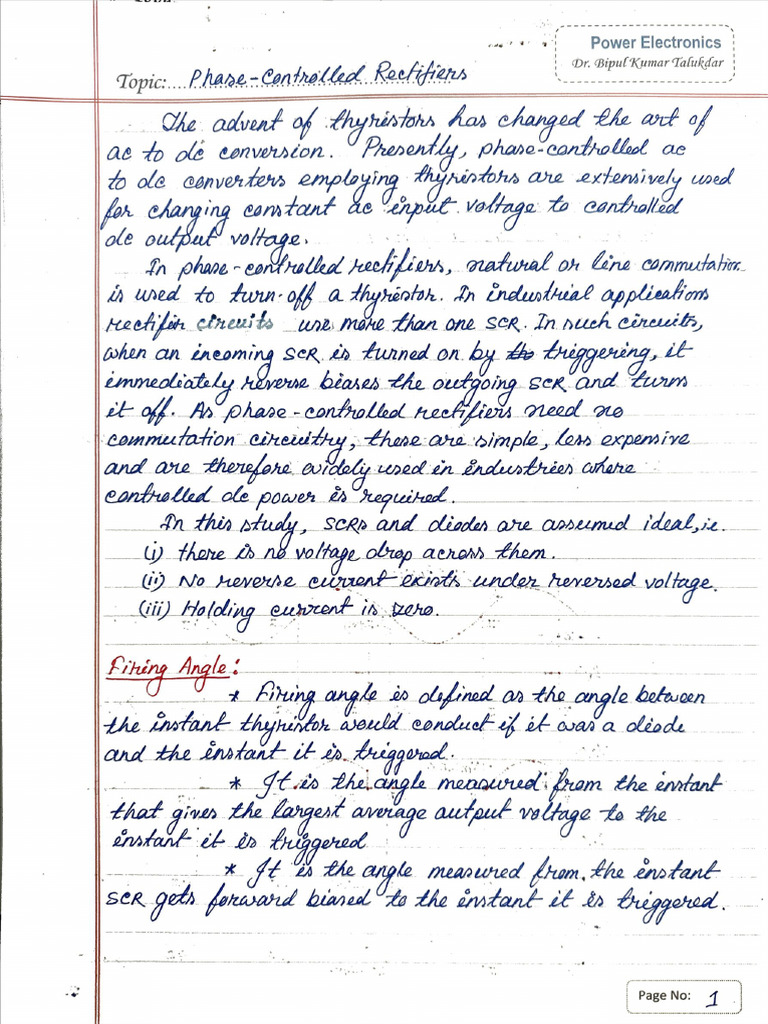 Power Electronics
Dr. Bipul Kumar Talukdar
Topic:.... Phase-Controlled Rectifiers
The advent of thyristors has changed the art of
ac to dc conversion. Presently, phase-controlled ac
to dc converters employing thyristors are extensively used
for changing constant ac input voltage to controlled
dc output voltage.
In phase-controlled rectifiers, natural or line commutation
is used to turn-off a thyristor. In industrial applications
rectifier circuits use more than one SCR. In such circuits,
when an incoming SCR is turned on by triggering, it
immediately reverse biases the outgoing SCR and turns
it off. As phase-controlled rectifiers need no
commutation circuitry, these are simple, less expensive
and are therefore widely used in industries where
controlled dc power is required.
In this study, SCRs and diodes are assumed ideal, i.e.
(i) there is no voltage drop across them.
(ii) No reverse current exists under reversed voltage.
(iii) Holding current is zero.
Firing Angle:
* Firing angle is defined as the angle between
the instant thyristor would conduct if it was a diode
and the instant it is triggered.
* It is the angle measured from the instant
that gives the largest average output voltage to the
instant it is triggered
* It is the angle measured from the instant
SCR gets forward biased to the instant it is triggered.
Page No: 1